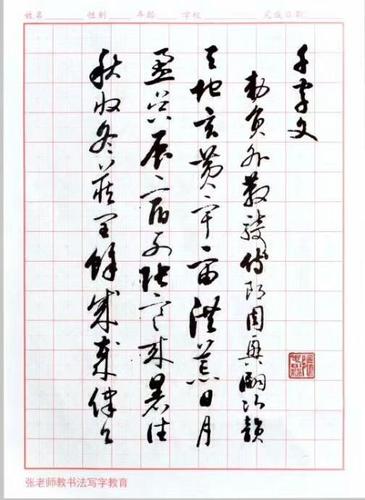 姓名 性别 年龄 学校 完成日期
千字文
勅員外散騎侍郎周興嗣次韻
天地玄黄宇宙洪荒日月
盈昃辰宿列張寒来暑往
秋收冬藏閏餘成歲律吕
张老师教书法写字教育